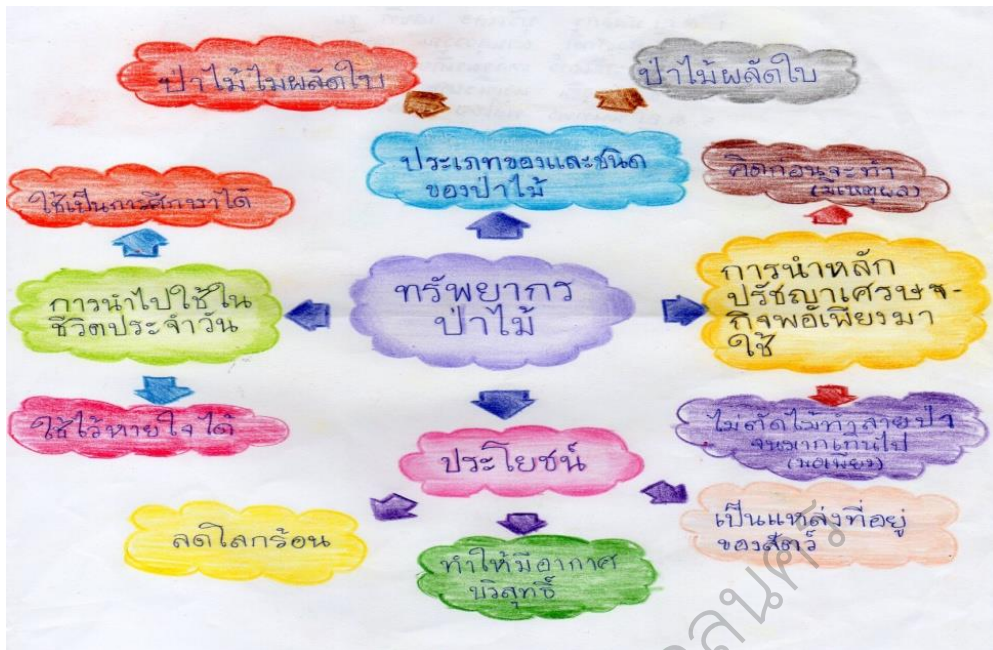 ป่าไม้ไม่ผลัดใบ
ป่าไม้ผลัดใบ
ประเภทของและชนิด
ของป่าไม้
คิดก่อนจะทำ
(มีเหตุผล)
ใช้เป็นการศึกษาได้
การนำไปใช้ใน
ชีวิตประจำวัน
ทรัพยากร
ป่าไม้
การนำหลัก
ปรัชญาเศรษฐ-
กิจพอเพียงมา
ใช้
ใช้ไว้หายใจได้
ไม่ตัดไม้ทำลายป่า
จนมากเกินไป
(พอเพียง)
ประโยชน์
ลดโลกร้อน
ทำให้มีอากาศ
บริสุทธิ์
เป็นแหล่งที่อยู่
ของสัตว์